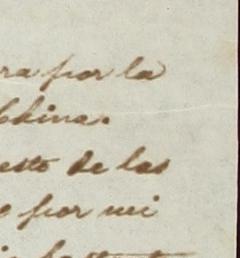 ra por la
China.
esto de las
por mi